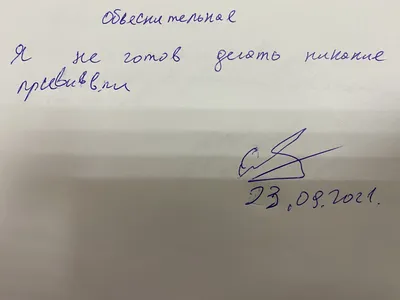 Обьеснительная
Я не готов делать никакие
прививвпи
23.09.2021.